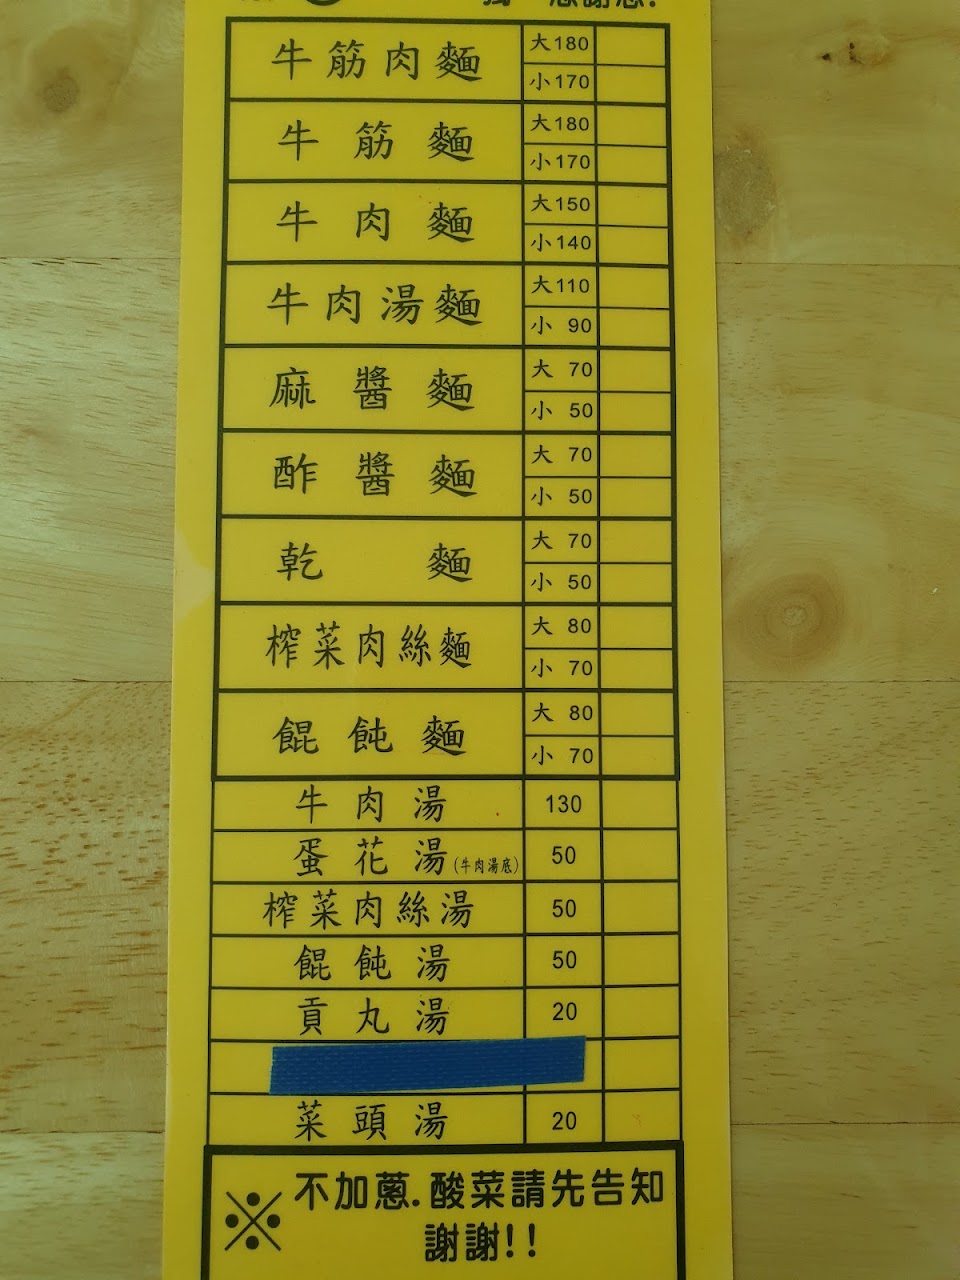 牛筋肉麵 大180
小170
牛筋麵 大180
小170
牛肉麵 大150
小140
牛肉湯麵 大110
小 90
麻醬麵 大 70
小 50
酢醬麵 大 70
小 50
乾麵 大 70
小 50
榨菜肉絲麵 大 80
小 70
餛飩麵 大 80
小 70
牛肉湯 130
蛋花湯(牛肉湯底) 50
榨菜肉絲湯 50
餛飩湯 50
貢丸湯 20
菜頭湯 20
※不加蔥.酸菜請先告知
謝謝!!